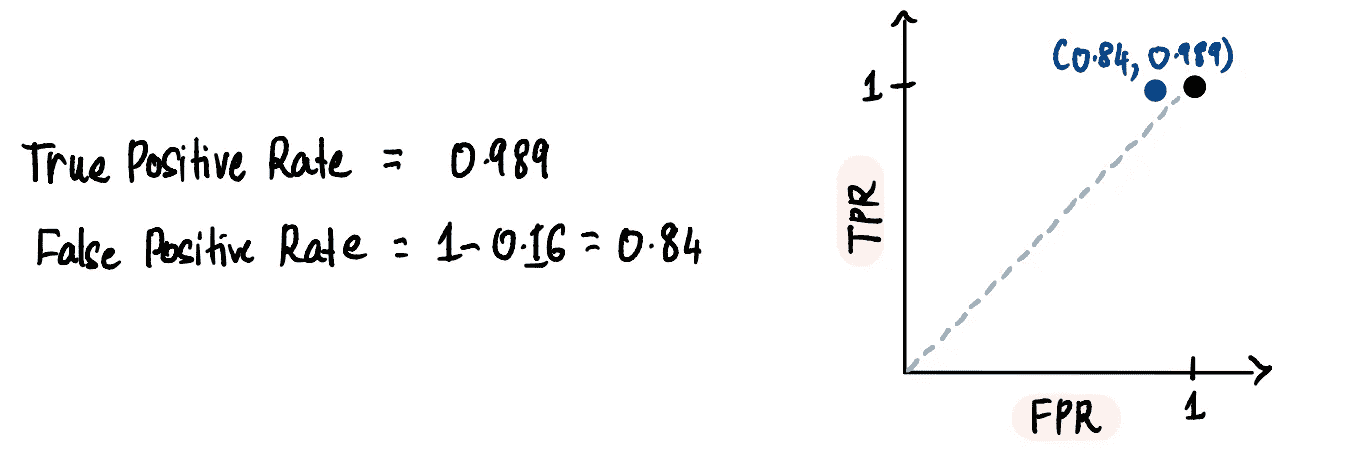 True Positive Rate = 0.989
False Positive Rate = 1-0.16 = 0.84
(0.84, 0.989)
1
TPR
1
FPR